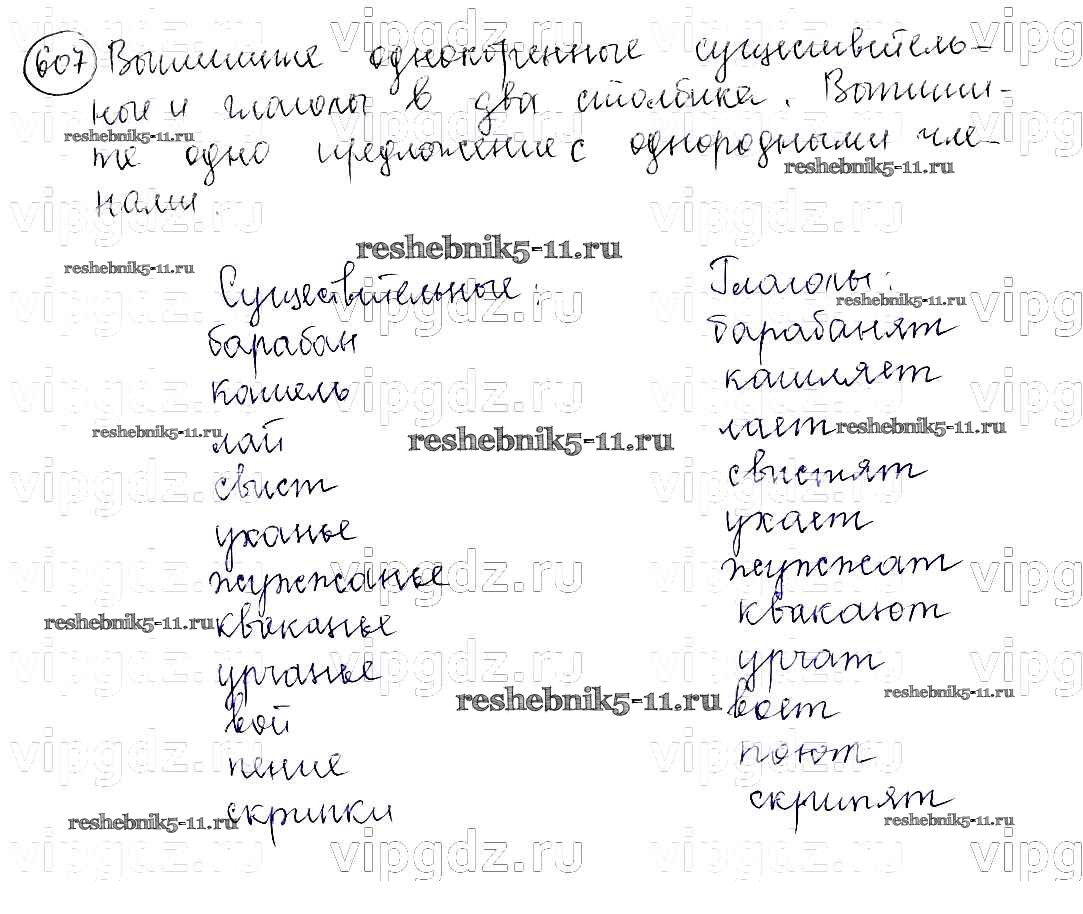 607 Выпишите однокоренные существитель-
ные и глаголы в два столбика. Выпиши-
те одно предложение с однородными чле-
нами.
Существительные: Глаголы:
барабан барабанят
кашель кашляет
лай лает
свист свистят
уханье ухает
жужжанье жужжат
кваканье квакают
урчанье урчат
вой воет
пение поют
скрипки скрипят
vipgdz.ru
reshebnik5-11.ru